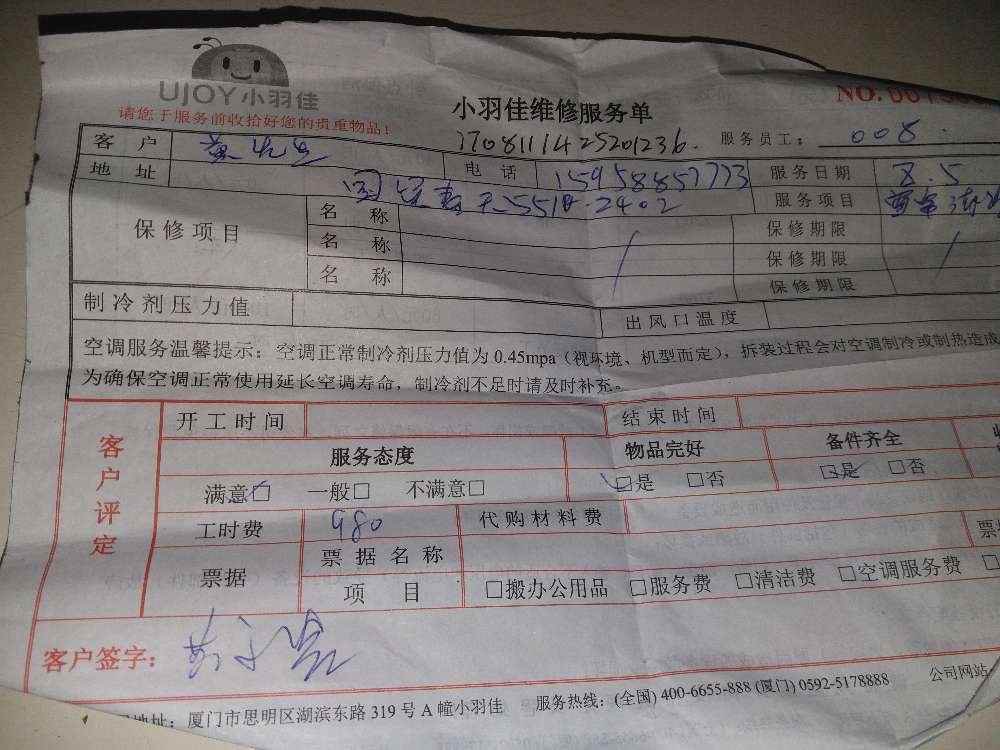 UJOY小羽佳
请您于服务前收拾好您的贵重物品！
小羽佳维修服务单
NO.
1708111425201236.
服务员工： 008
客户
电话 15958857773
服务日期 8.5
地址 2402
服务项目
保修项目
名称 / 保修期限 /
名称 保修期限
名称 保修期限
制冷剂压力值 出风口温度
空调服务温馨提示：空调正常制冷剂压力值为 0.45mpa（视环境、机型而定），拆装过程会对空调制冷或制热造成
为确保空调正常使用延长空调寿命，制冷剂不足时请及时补充。
客户评定
开工时间 结束时间
服务态度 物品完好 备件齐全
满意☑ 一般□ 不满意□ ☑是 □否 ☑是 □否
工时费 980 代购材料费
票据 票据名称
项目 □搬办公用品 □服务费 □清洁费 □空调服务费
客户签字：
地址：厦门市思明区湖滨东路 319 号 A 幢小羽佳 服务热线：(全国) 400-6655-888 (厦门) 0592-5178888 公司网站